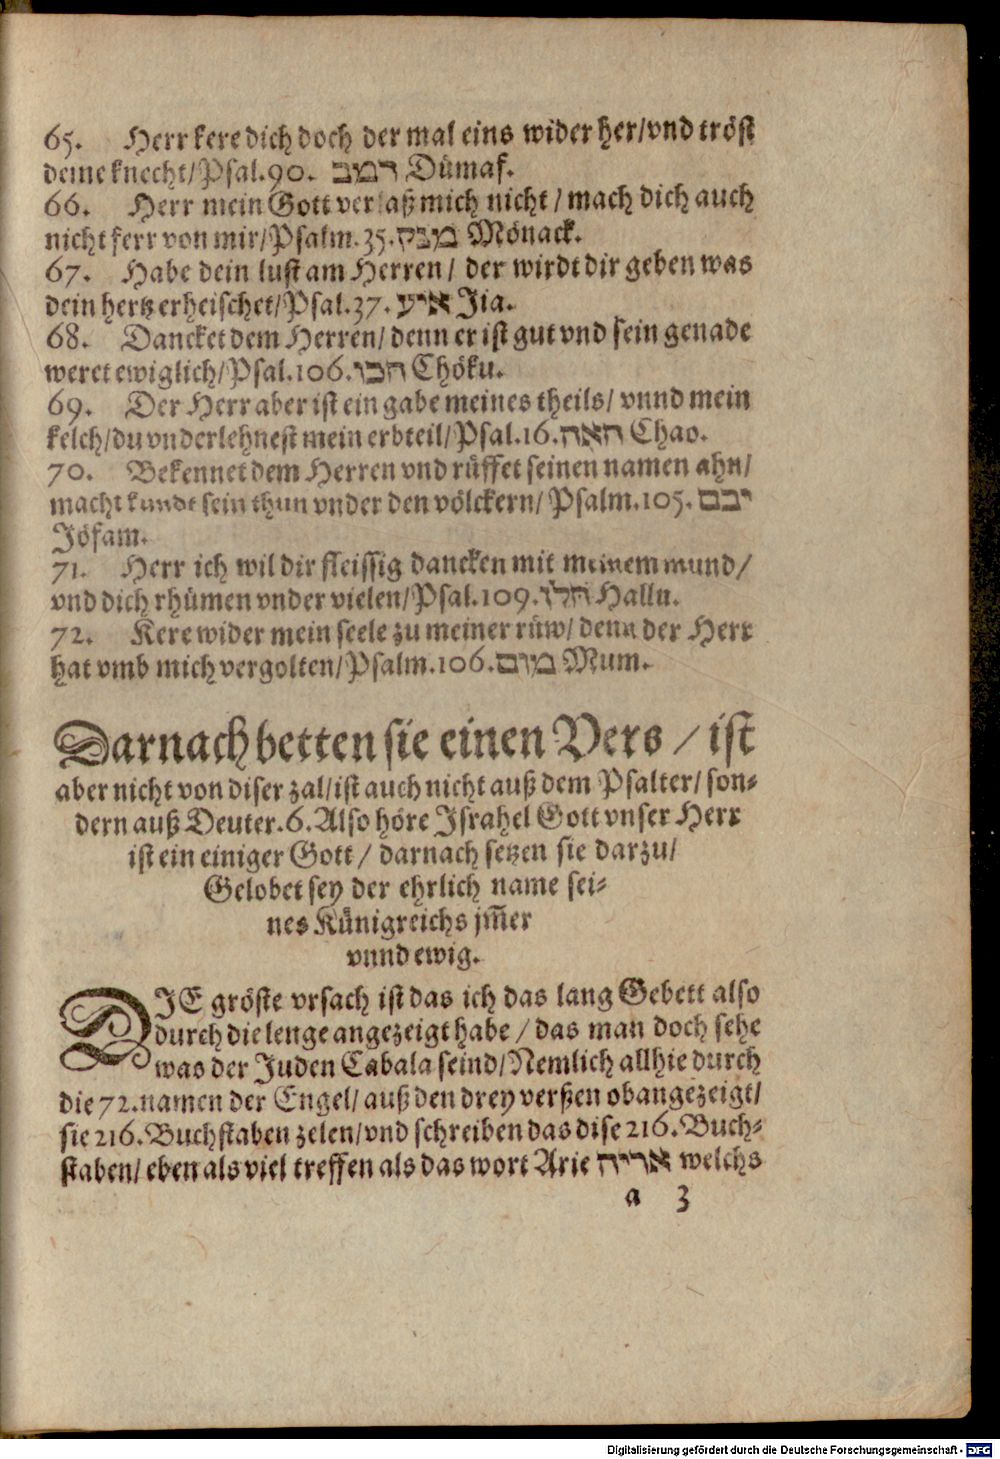 65. Herr kere dich doch der mal eins wider her/vnd tröst
deine knecht/Psal.90. דמב Dümaf.
66. Herr mein Gott verlaß mich nicht / mach dich auch
nicht ferr von mir/Psalm.35.מנק Mönack.
67. Habe dein lust am Herren / der wirdt dir geben was
dein hertz erheischet/Psal.37. איע Jia.
68. Dancket dem Herren/ denn er ist gut vnd sein genade
weret ewiglich/Psal.106.חבו Chöku.
69. Der Herr aber ist ein gabe meines theils/ vnnd mein
kelch/du vnderlehnest mein erbteil/Psal.16.ראה Chao.
70. Bekennet dem Herren vnd rüffet seinen namen ahn/
macht kundt sein thun vnder den völckern/ Psalm.105. יבם
Jöfam.
71. Herr ich wil dir fleissig dancken mit meinem mund/
vnd dich rhümen vnder vielen/Psal.109.הלו Hallu.
72. Kere wider mein seele zu meiner rüw/ denn der Herr
hat vmb mich vergolten/Psalm.106.מום Mum.
Darnach betten sie einen Vers / ist
aber nicht von diser zal/ist auch nicht auß dem Psalter/ son-
dern auß Deuter.6. Also höre Israhel Gott vnser Herr
ist ein einiger Gott / darnach setzen sie darzu/
Gelobet sey der ehrlich name sei-
nes Künigreichs jm̃er
vnnd ewig.
DIE gröste vrsach ist das ich das lang Gebett also
durch die lenge angezeigt habe / das man doch sehe
was der Juden Cabala seind/Nemlich allhie durch
die 72.namen der Engel/ auß den drey verßen obangezeigt/
sie 216. Buchstaben zelen/vnd schreiben das dise 216. Buch-
staben/ eben als viel treffen als das wort Arie אריה welchs
a 3
Digitalisierung gefördert durch die Deutsche Forschungsgemeinschaft - DFG